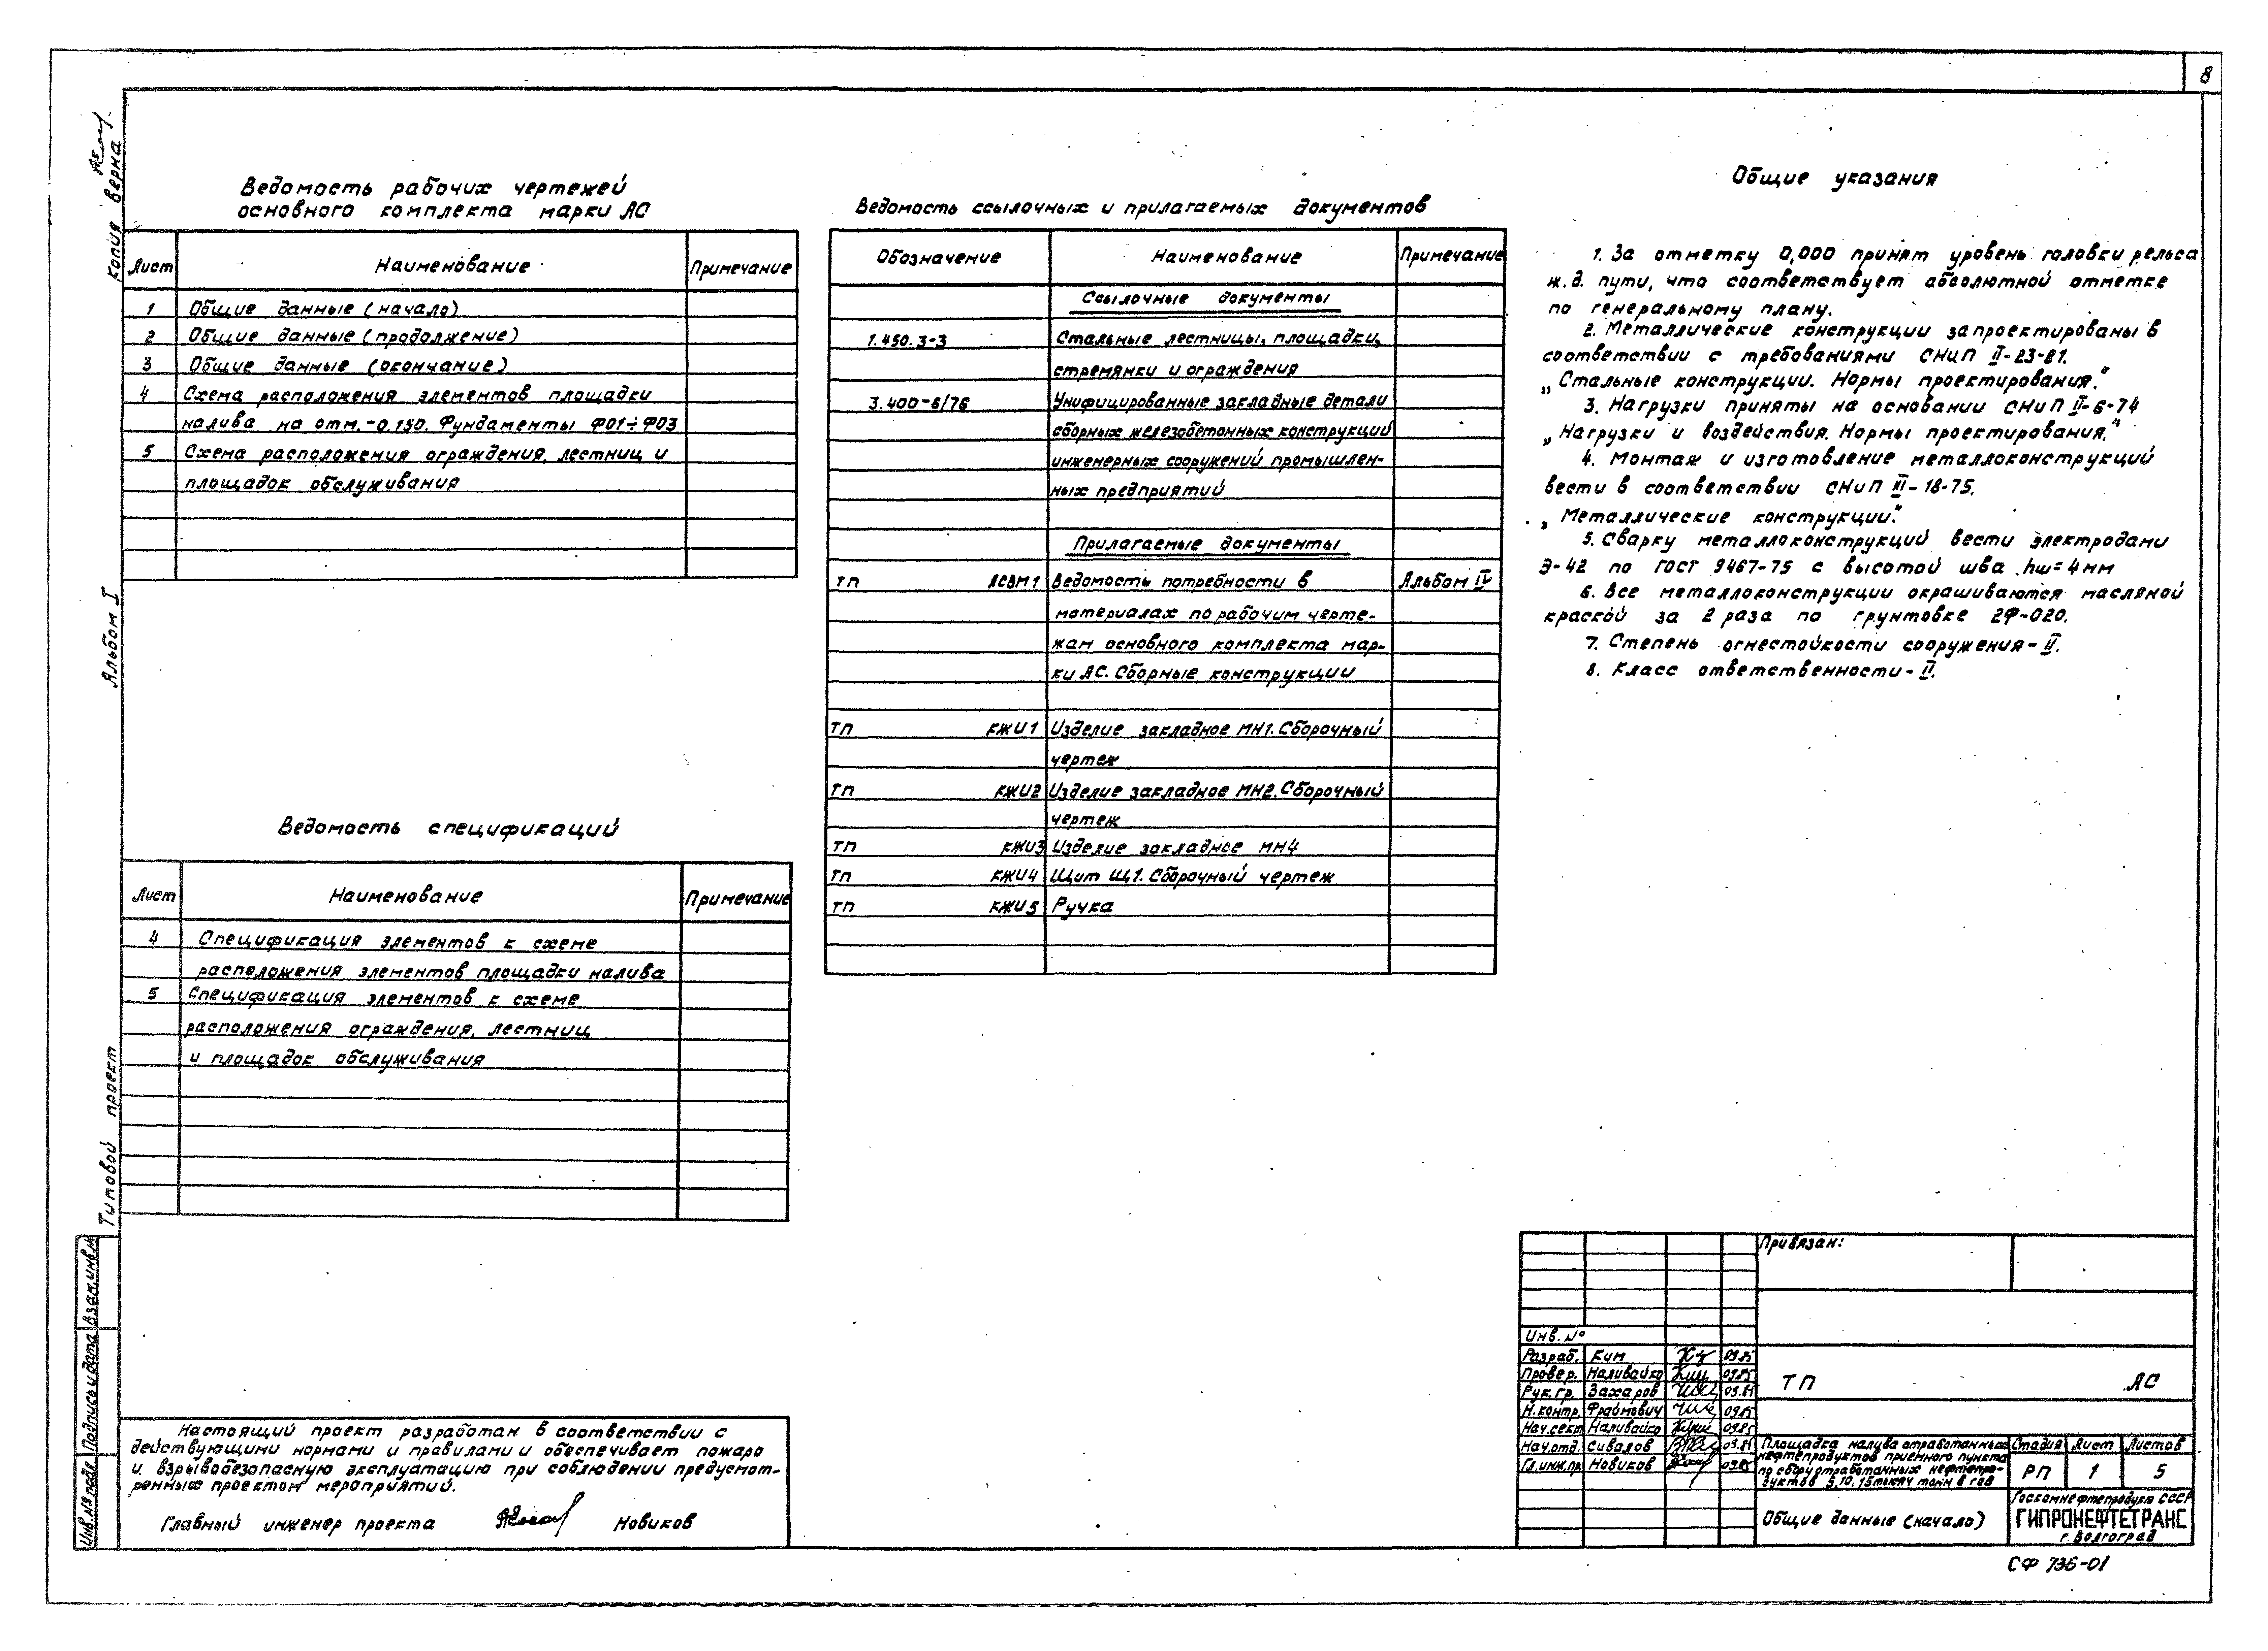 8
Копия верна
Альбом I
Типовой проект
Взам.инв.№
Подпись и дата
Инв.№ подл.
Ведомость рабочих чертежей
основного комплекта марки АС
Лист Наименование Примечание
1 Общие данные (начало)
2 Общие данные (продолжение)
3 Общие данные (окончание)
4 Схема расположения элементов площадки
налива на отм. -0.150. Фундаменты Ф01÷Ф03
5 Схема расположения ограждения, лестниц и
площадок обслуживания
Ведомость спецификаций
Лист Наименование Примечание
4 Спецификация элементов к схеме
расположения элементов площадки налива
5 Спецификация элементов к схеме
расположения ограждения, лестниц
и площадок обслуживания
Настоящий проект разработан в соответствии с
действующими нормами и правилами и обеспечивает пожаро
и взрывобезопасную эксплуатацию при соблюдении предусмот-
ренных проектом мероприятий.
Главный инженер проекта Новиков
Ведомость ссылочных и прилагаемых документов
Обозначение Наименование Примечание
Ссылочные документы
1.450.3-3 Стальные лестницы, площадки,
стремянки и ограждения
3.400-6/76 Унифицированные закладные детали
сборных железобетонных конструкций
инженерных сооружений промышлен-
ных предприятий
Прилагаемые документы
ТП АСВМ1 Ведомость потребности в Альбом IV
материалах по рабочим черте-
жам основного комплекта мар-
ки АС. Сборные конструкции
ТП КЖИ1 Изделие закладное МН1. Сборочный
чертеж
ТП КЖИ2 Изделие закладное МН2. Сборочный
чертеж
ТП КЖИ3 Изделие закладное МН4
ТП КЖИ4 Щит Щ1. Сборочный чертеж
ТП КЖИ5 Ручка
Общие указания
1. За отметку 0,000 принят уровень головки рельса
ж.д. пути, что соответствует абсолютной отметке
по генеральному плану.
2. Металлические конструкции запроектированы в
соответствии с требованиями СНиП II-23-81.
„Стальные конструкции. Нормы проектирования."
3. Нагрузки приняты на основании СНиП II-6-74
„Нагрузки и воздействия. Нормы проектирования."
4. Монтаж и изготовление металлоконструкций
вести в соответствии СНиП III-18-75.
„Металлические конструкции."
5. Сварку металлоконструкций вести электродами
Э-42 по ГОСТ 9467-75 с высотой шва hш=4мм
6. Все металлоконструкции окрашиваются масляной
краской за 2 раза по грунтовке ГФ-020.
7. Степень огнестойкости сооружения-II.
8. Класс ответственности-II.
Привязан:
Инв. №
Разраб. Ким 09.85
Провер. Наливайко 09.85
Рук.гр. Захаров 09.85
Н.контр. Фраймович 09.85
Нач.сект. Наливайко 09.85
Нач.отд. Сивалов 09.85
Гл.инж.пр. Новиков 09.85
ТП АС
Площадка налива отработанных
нефтепродуктов приемного пункта
по сбору отработанных нефтепро-
дуктов 5,10,15 тысяч тонн в год
Стадия Лист Листов
РП 1 5
Общие данные (начало)
Госкомнефтепродукт СССР
ГИПРОНЕФТЕТРАНС
г. Волгоград
СФ 736-01